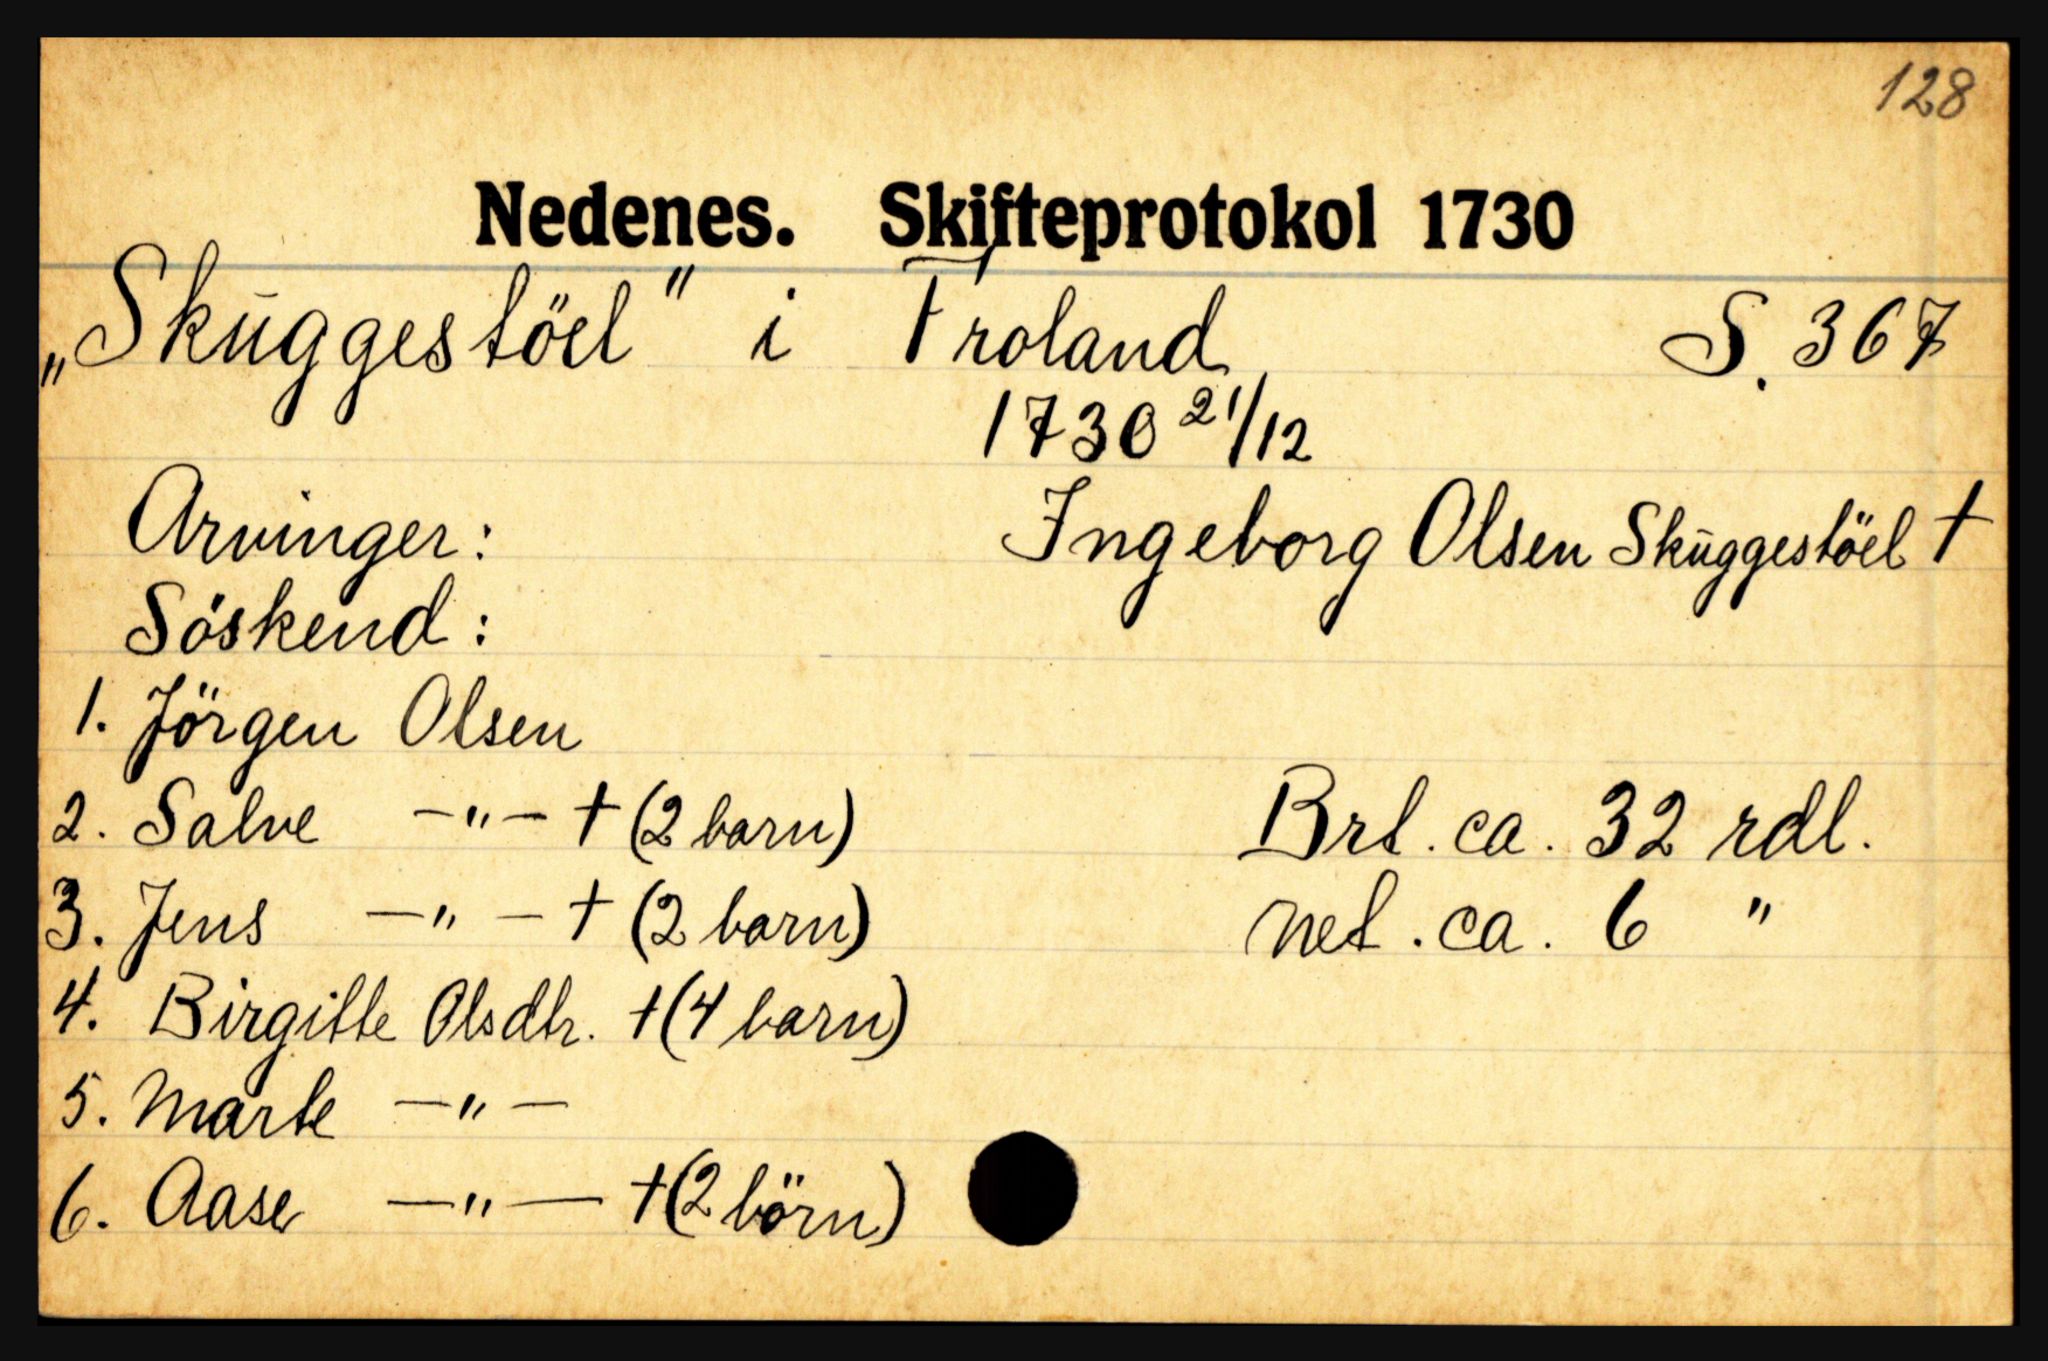 128
Nedenes. Skifteprotokol 1730
„Skuggestöel" i Froland S. 367
1730 21/12
Arvinger: Ingeborg Olsen Skuggestöel †
Söskend:
1. Jörgen Olsen
2. Salve —"— † (2 barn) Brt. ca. 32 rdl.
3. Jens —"— † (2 barn) net. ca. 6 "
4. Birgitte Olsdtr. † (4 barn)
5. Marte —"—
6. Aase —"— † (2 börn)